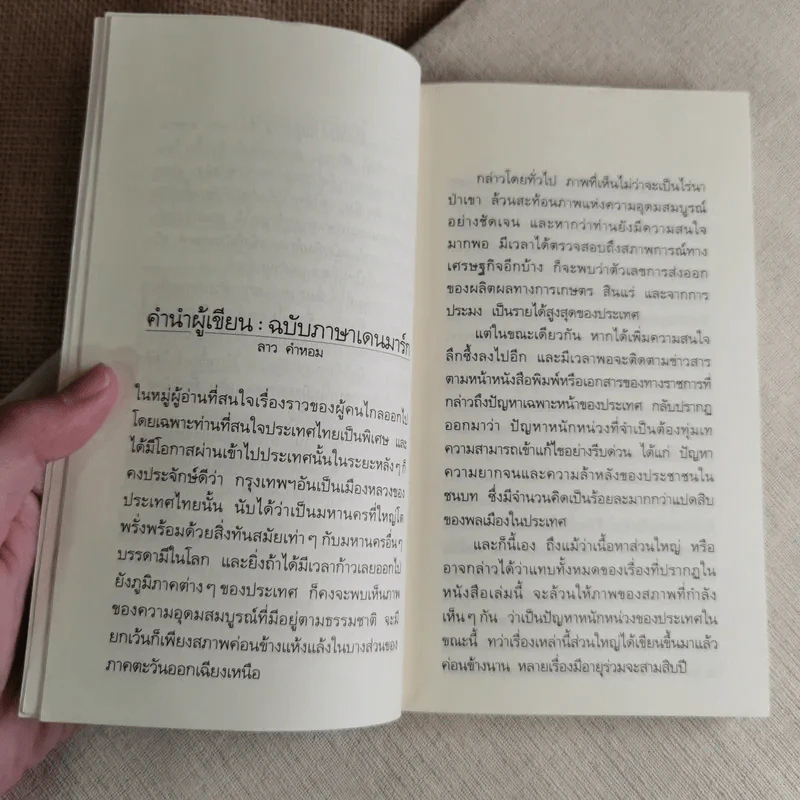 คำนำผู้เขียน : ฉบับภาษาเดนมาร์ก
ลาว คำหอม
ในหมู่ผู้อ่านที่สนใจเรื่องราวของผู้คนไกลออกไป
โดยเฉพาะท่านที่สนใจประเทศไทยเป็นพิเศษ และ
ได้มีโอกาสผ่านเข้าไปประเทศนั้นในระยะหลังๆ ก็
คงประจักษ์ดีว่า กรุงเทพฯอันเป็นเมืองหลวงของ
ประเทศไทยนั้น นับได้ว่าเป็นมหานครที่ใหญ่โต
พรั่งพร้อมด้วยสิ่งทันสมัยเท่าๆ กับมหานครอื่นๆ
บรรดามีในโลก และยิ่งถ้าได้มีเวลาก้าวเลยออกไป
ยังภูมิภาคต่างๆ ของประเทศ ก็คงจะพบเห็นภาพ
ของความอุดมสมบูรณ์ที่มีอยู่ตามธรรมชาติ จะมี
ยกเว้นก็เพียงสภาพค่อนข้างแห้งแล้งในบางส่วนของ
ภาคตะวันออกเฉียงเหนือ
กล่าวโดยทั่วไป ภาพที่เห็นไม่ว่าจะเป็นไร่นา
ป่าเขา ล้วนสะท้อนภาพแห่งความอุดมสมบูรณ์
อย่างชัดเจน และหากว่าท่านยังมีความสนใจ
มากพอ มีเวลาได้ตรวจสอบถึงสภาพการณ์ทาง
เศรษฐกิจอีกบ้าง ก็จะพบว่าตัวเลขการส่งออก
ของผลิตผลทางการเกษตร สินแร่ และจากการ
ประมง เป็นรายได้สูงสุดของประเทศ
แต่ในขณะเดียวกัน หากได้เพิ่มความสนใจ
ลึกซึ้งลงไปอีก และมีเวลาพอจะติดตามข่าวสาร
ตามหน้าหนังสือพิมพ์หรือเอกสารของทางราชการที่
กล่าวถึงปัญหาเฉพาะหน้าของประเทศ กลับปรากฏ
ออกมาว่า ปัญหาหนักหน่วงที่จำเป็นต้องทุ่มเท
ความสามารถเข้าแก้ไขอย่างรีบด่วน ได้แก่ ปัญหา
ความยากจนและความล้าหลังของประชาชนใน
ชนบท ซึ่งมีจำนวนคิดเป็นร้อยละมากกว่าแปดสิบ
ของพลเมืองในประเทศ
และก็นี้เอง ถึงแม้ว่าเนื้อหาส่วนใหญ่ หรือ
อาจกล่าวได้ว่าแทบทั้งหมดของเรื่องที่ปรากฏใน
หนังสือเล่มนี้ จะล้วนให้ภาพของสภาพที่กำลัง
เห็นๆ กัน ว่าเป็นปัญหาหนักหน่วงของประเทศใน
ขณะนี้ ทว่าเรื่องเหล่านี้ส่วนใหญ่ได้เขียนขึ้นมาแล้ว
ค่อนข้างนาน หลายเรื่องมีอายุร่วมจะสามสิบปี